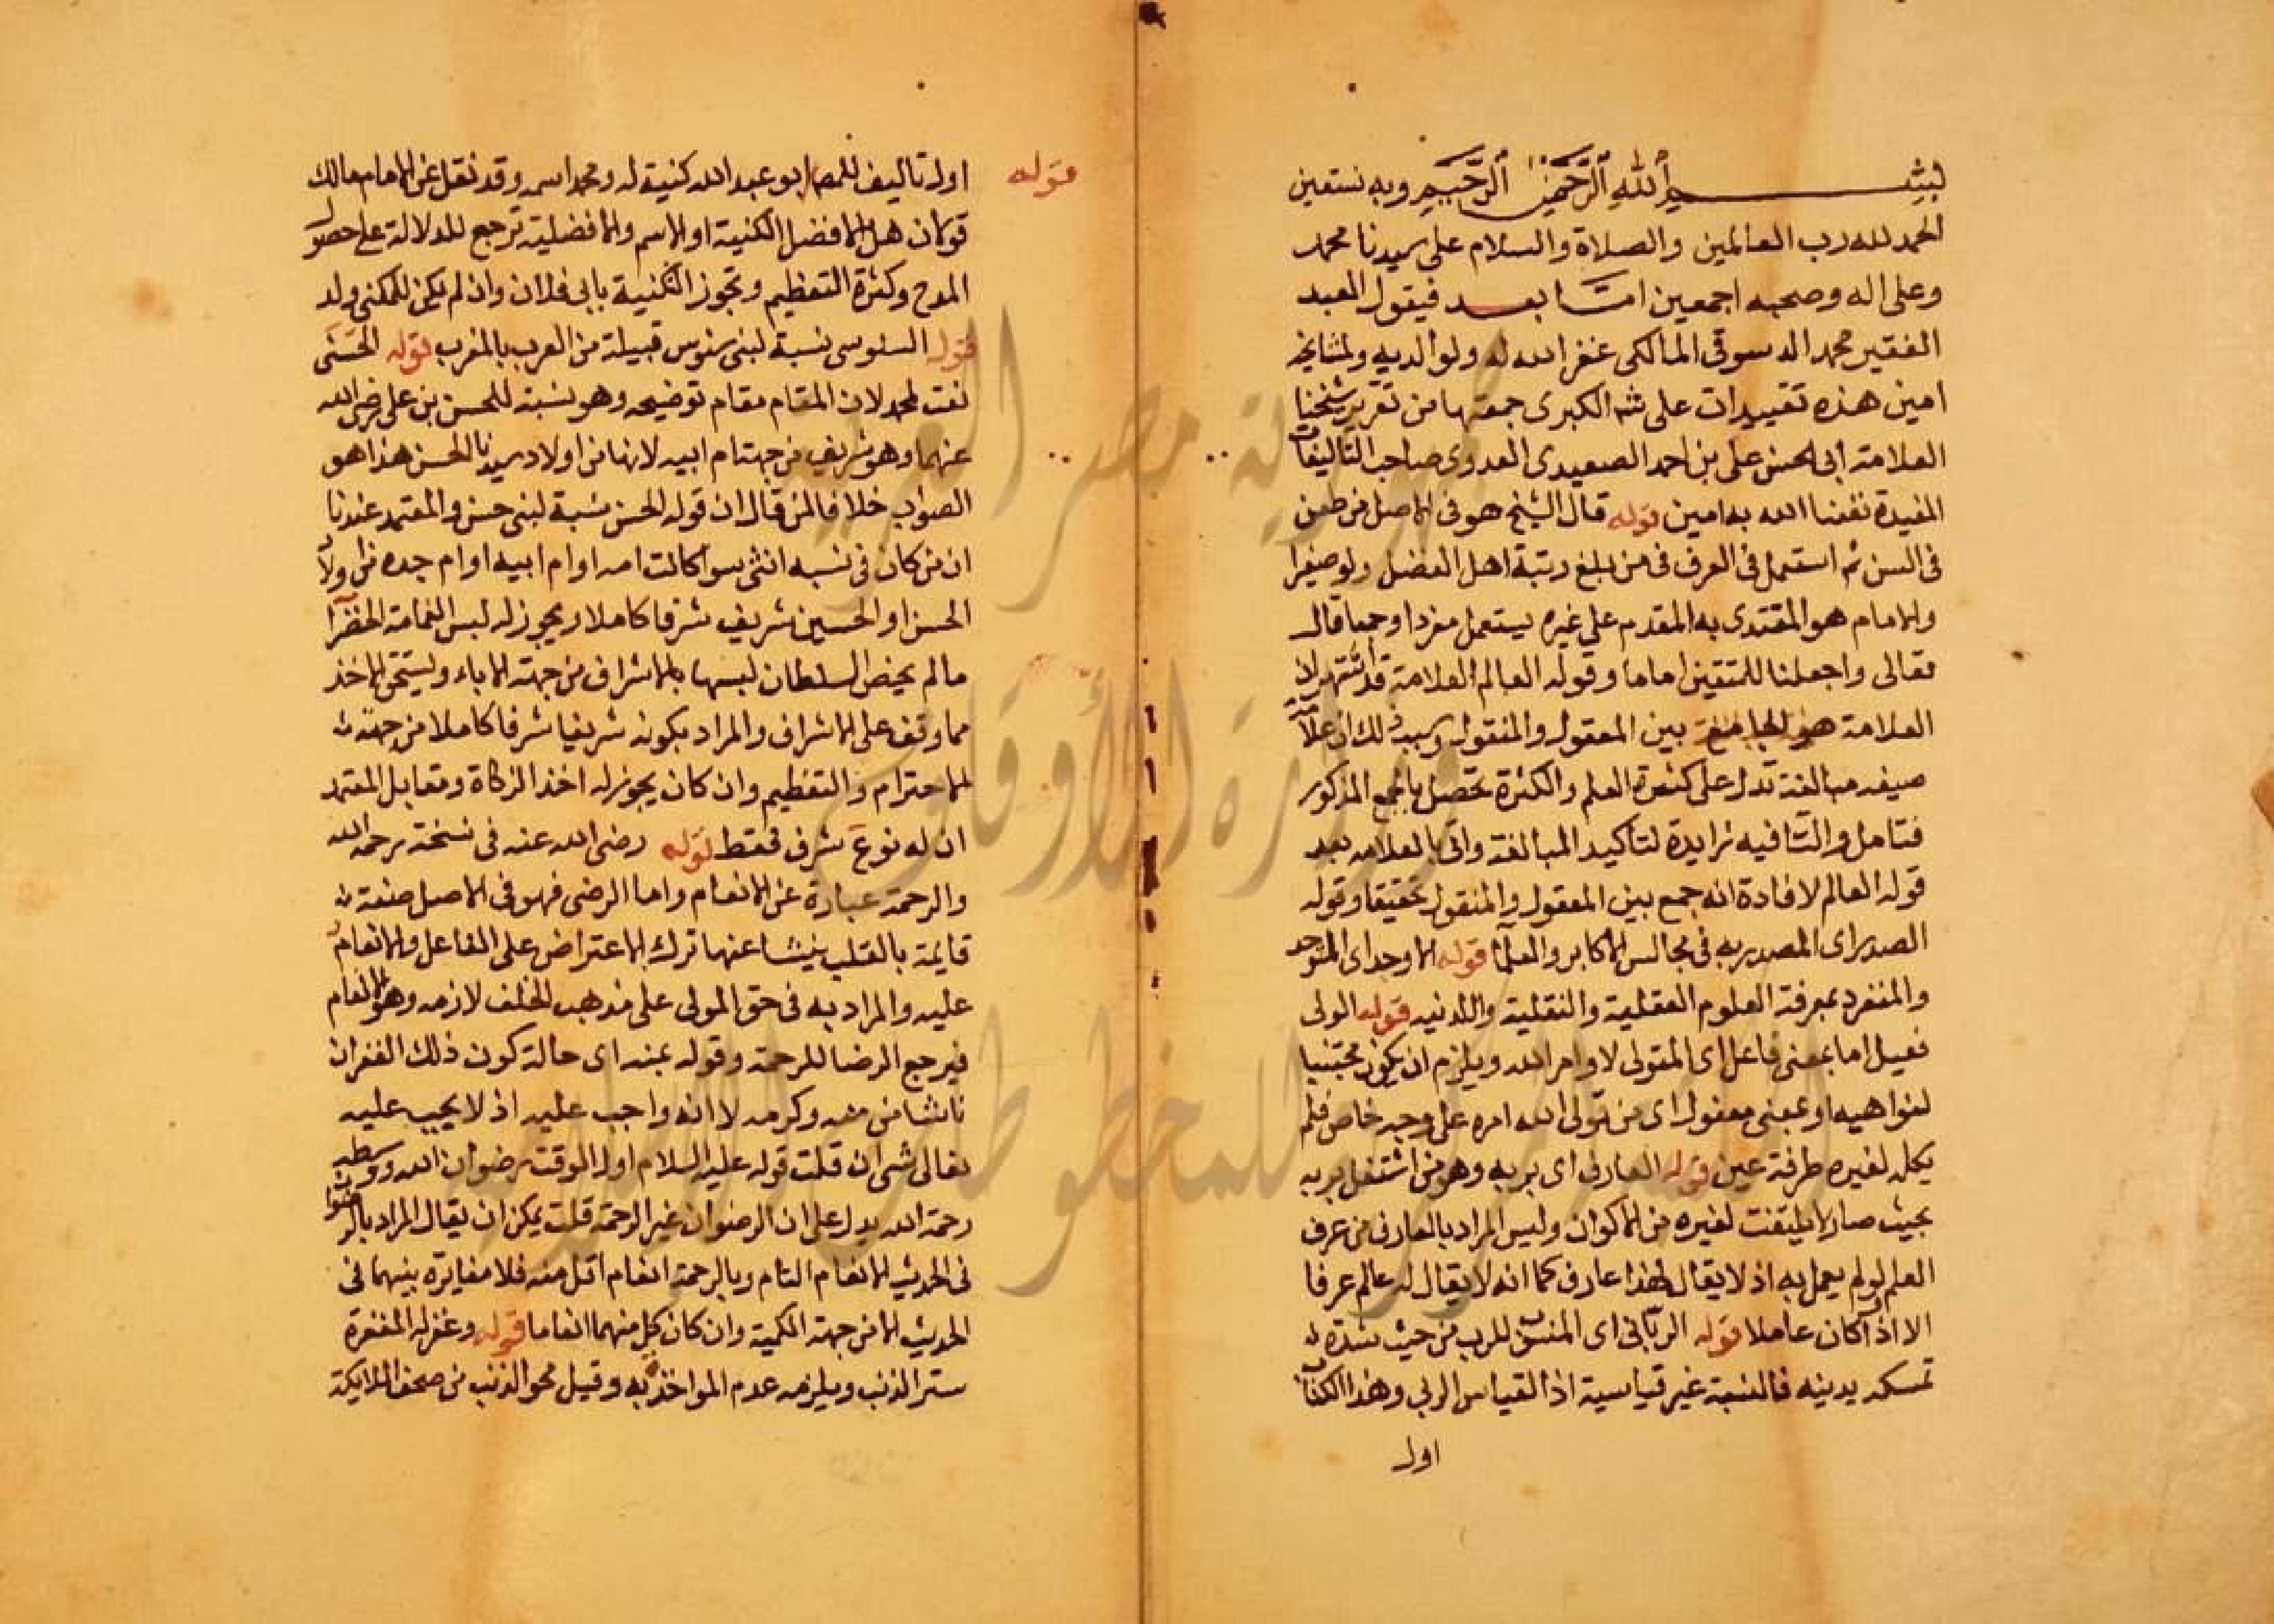 بسم الله الرحمن الرحيم وبه نستعين
الحمد لله رب العالمين والصلاة والسلام على سيدنا محمد
وعلى اله وصحبه اجمعين اما بعد فيقول العبد
الفقير محمد الدسوقي المالكي غفر الله له ولوالديه ولمشايخه
امين هذه تقييدات على شه الكبرى جمعتها من تقرير شيخنا
العلامة ابى الحسن على بن احمد الصعيدى العدوى صاحب التاليفات
المفيدة نفعنا الله به امين قوله قال الشيخ هو فى الاصل من طعن
فى السن ثم استعمل فى العرف فى من بلغ رتبة اهل الفضل ولو صغيرا
والامام هو المقتدى به المقدم على غيره يستعمل مفردا وجمعا قال
تعالى واجعلنا للمتقين اماما وقوله العالم العلامة قد اشتهر ان
العلامة هو الجامع بين المعقول والمنقول وسبب ذلك ان علامة
صيغه مبالغة تدل على كثرة العلم والكثرة تحصل بالجمع المذكور
فتامل والتا فيه زايدة لتاكيد المبالغة واتى بالعلامه بعد
قوله العالم لافادة انه جمع بين المعقول والمنقول تحقيقا وقوله
الصدر اى المصدر به فى مجالس الاكابر والعلما قوله الاوحد اى المتوحد
والمنفرد بمعرفة العلوم العقلية والنقلية واللدنيه قوله الولى
فعيل اما بمعنى فاعل اى المتولى لاوامر الله ويلزم ان يكون مجتنبا
لنواهيه او بمعنى مفعول اى من تولى الله امره على وجه خاص فلم
يكله لغيره طرفة عين قوله العارف اى بربه وهو من اشتغل بربه
بحيث صار لا يلتفت لغيره من الاكوان وليس المراد بالعارف من عرف
العلم ولم يعمل به اذ لا يقال لهذا عارف كما انه لا يقال له عالم عرفا
الا اذا كان عاملا قوله الربانى اى المنسوب للرب من حيث شدة
تمسكه بدينه فالنسبة غير قياسية اذ القياس الربى وهذا الكتاب
اول
اول تاليف للمص ابو عبد الله كنية له ومحمد اسمه وقد نقل عن الامام مالك
قولان هل الافضل الكنية او الاسم والافضلية ترجع للدلالة على حصول
المدح وكثرة التعظيم وتجوز التكنية بابى فلان وان لم يكن للمكنى ولد
قوله السنوسى نسبة لبنى سنوس قبيلة من العرب بالمغرب قوله الحسنى
نعت لمحمد لان المقام مقام توضيحه وهو نسبة للحسن بن على رضى الله
عنهما وهو شريف من جهة ام ابيه لانها من اولاد سيدنا الحسن هذا هو
الصواب خلافا لمن قال ان قوله الحسن نسبة لبنى حسن والمعتمد عندنا
ان من كان فى نسبه انثى سوا كانت امه او ام ابيه او ام جده من اولاد
الحسن او الحسين شريف شرفا كاملا ويجوز له لبس العمامة الخضرا
مالم يخص السلطان لبسها بالاشراف من جهة الاباء ويستحق الاخذ
مما وقف على الاشراف والمراد بكونه شريفا شرفا كاملا من جهة
الاحترام والتعظيم وان كان يجوز له اخذ الزكاة ومقابل المعتمد
ان له نوع شرف فقط قوله رضى الله عنه فى نسخة رحمه الله
والرحمة عبارة عن الانعام واما الرضى فهو فى الاصل صفة
قايمة بالقلب ينشا عنها ترك الاعتراض على الفاعل والانعام
عليه والمراد به فى حق المولى على مذهب الخلف لازمه وهو الانعام
فيرجع الرضا للرحمة وقوله بمنه اى حالة كون ذلك الغفران
ناشئا من منه وكرمه لا انه واجب عليه اذ لا يجب عليه
تعالى شى ان قلت قوله عليه السلام اول الوقت رضوان الله ووسطه
رحمة الله يدل على ان الرضوان غير الرحمة قلت يمكن ان يقال المراد بالرضوان
فى الحديث الانعام التام وبالرحمة انعام اقل منه فلا مغايرة بينهما فى
الحديث الا من جهة الكمية وان كان كل منهما انعاما قوله وغفر له المغفرة
ستر الذنب ويلزمه عدم المواخذة به وقيل محو الذنب من صحف الملايكة
قوله
جمهورية مصر العربية
وزارة الأوقاف